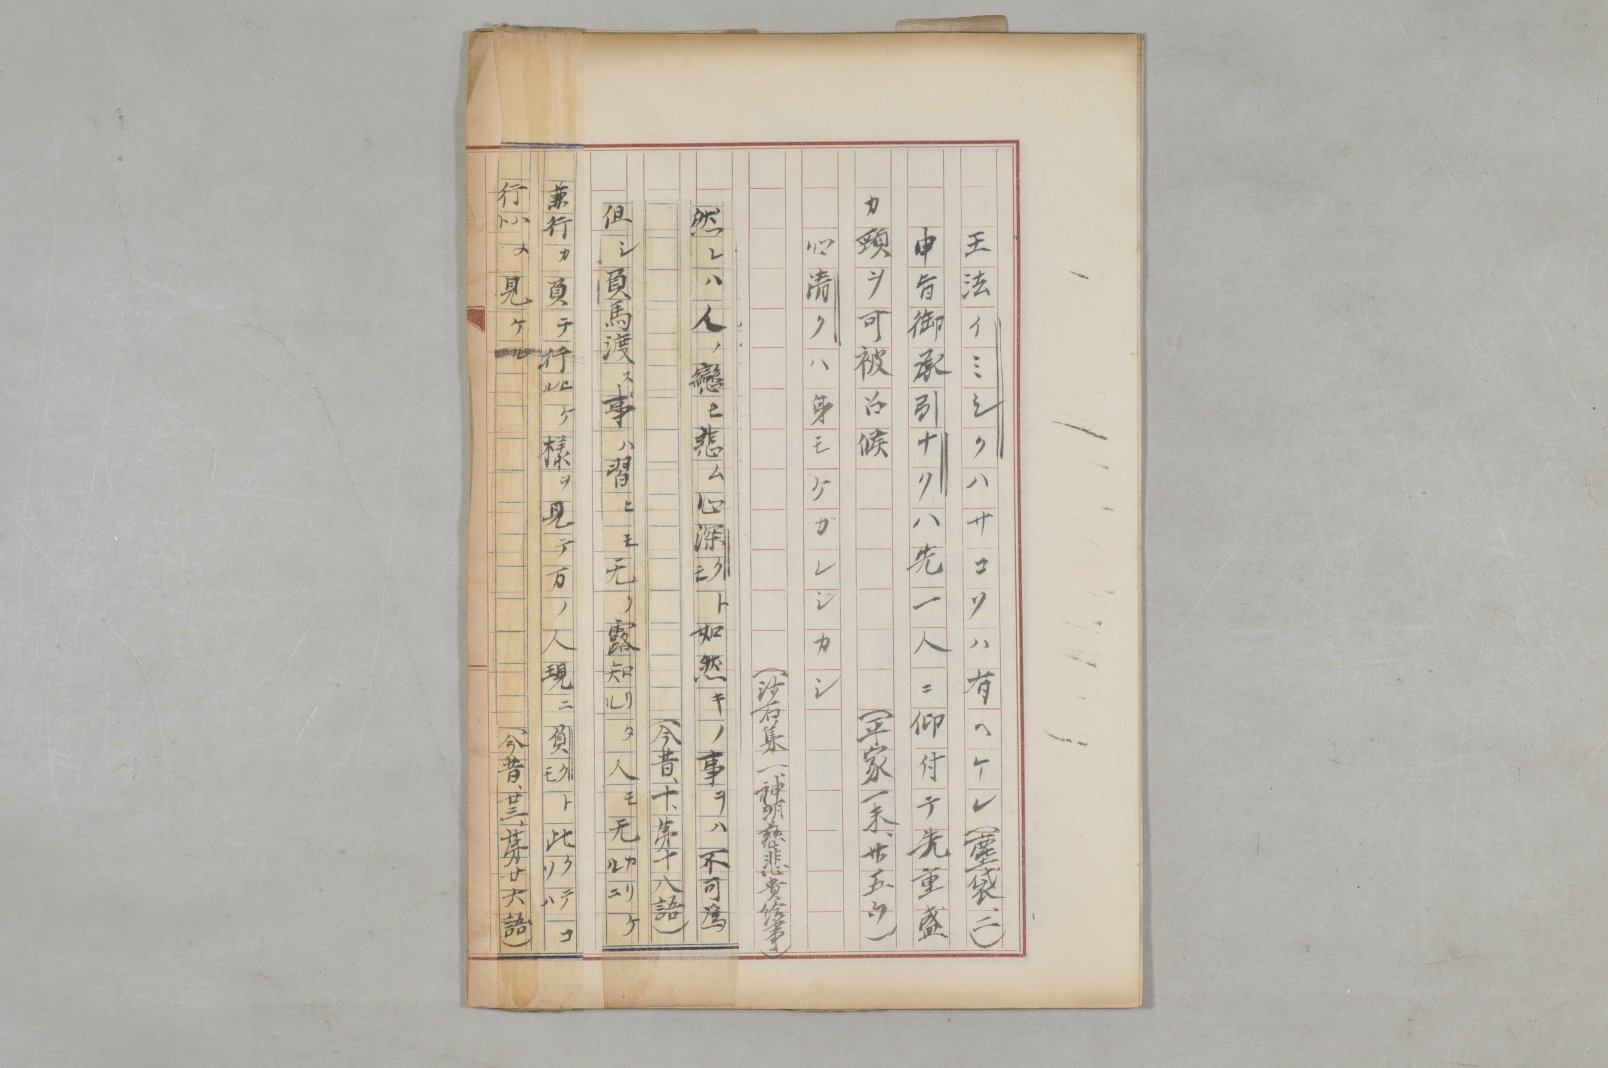 王法イミシクハサコソハ有ヘケレ(塵袋、二)
申旨御承引ナクハ先一人ニ仰付テ先重盛
カ頸ヲ可被召候　(平家一末、廿五ウ)
心清クハ身モケガレジカシ
(沙石集一、神明慈悲貴給事)
然レハ人ノ戀ヒ悲ム心深クトモ如然キノ事ヲハ不可為
(今昔、十、第十八語)
但シ負馬渡ス事ハ習ヒモ无ク露知リタル人モ无カリケルニ
兼行カ負テ行ヒケル様ヲ見テ万ノ人現ニ負クトモ此クテコソハ
行ハメト見ケル　(今昔、廿三、第廿六語)